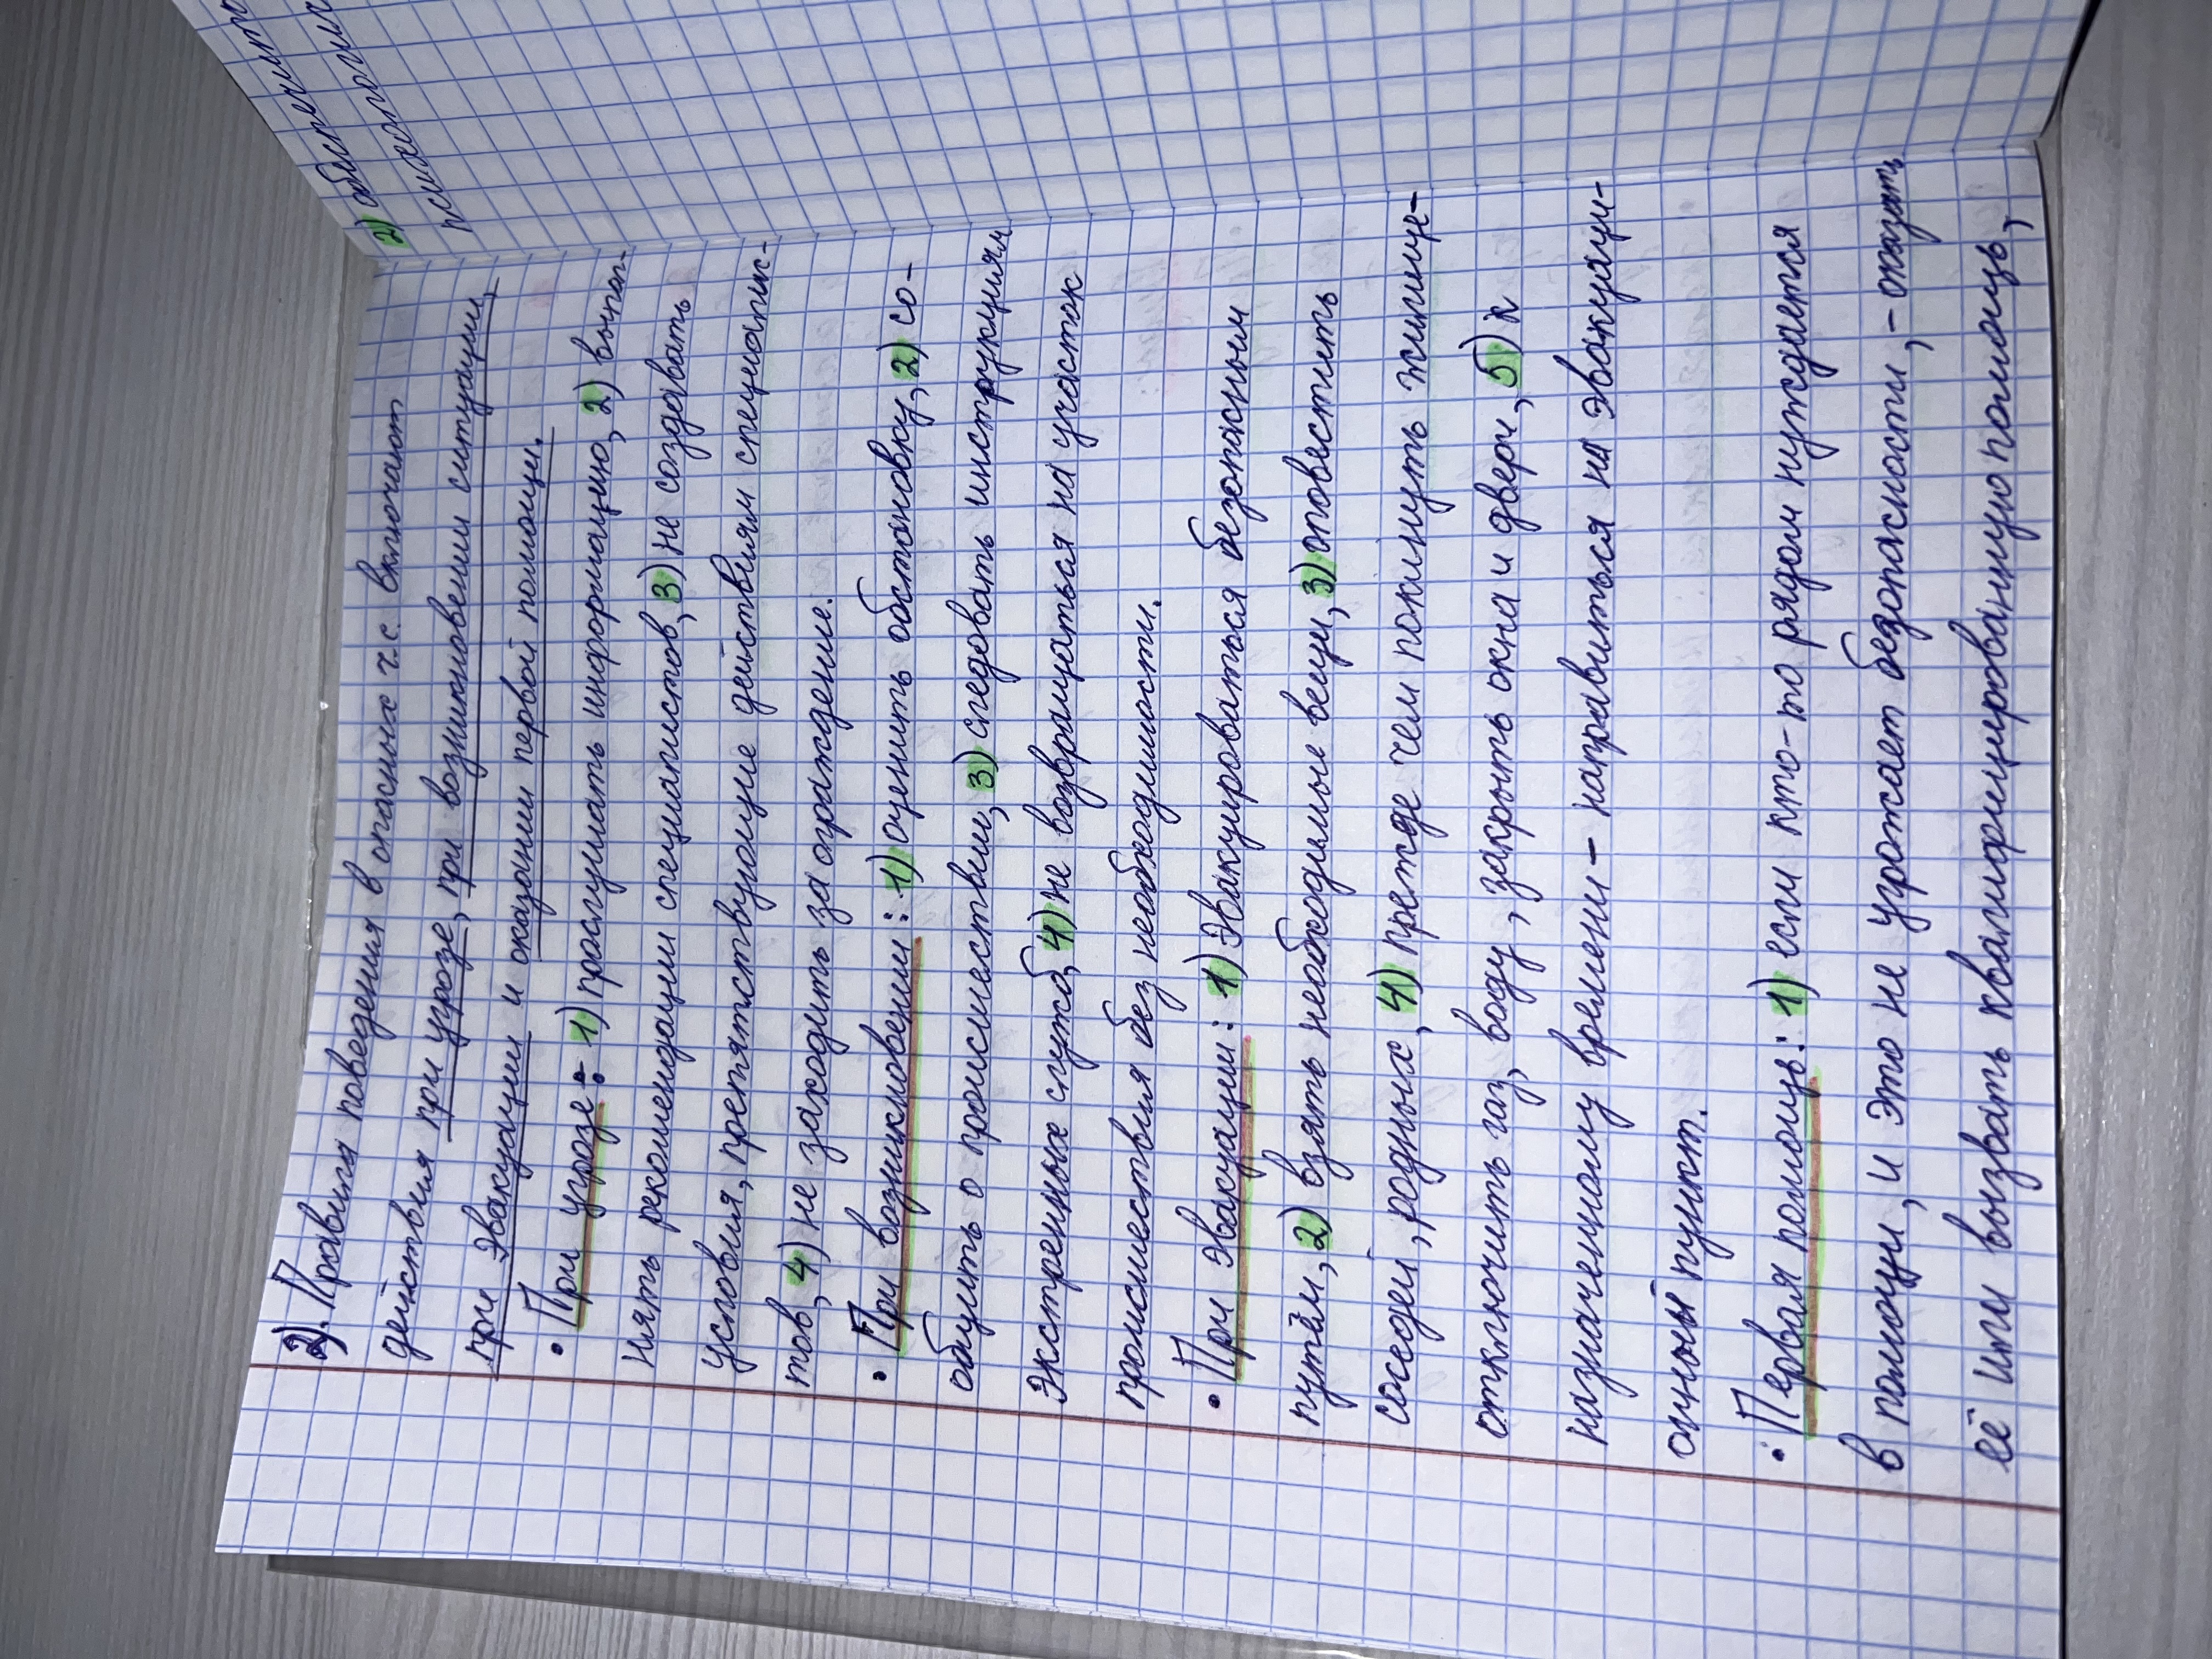 2). Правила поведения в опасных ч.с. включают
действия при угрозе, при возникновении ситуации,
при эвакуации и оказании первой помощи.
• При угрозе: 1) прослушать информацию, 2) выпол-
нять рекомендации специалистов, 3) не создавать
условия, препятствующие действиям специалис-
тов, 4) не заходить за ограждение.
• При возникновении: 1) оценить обстановку, 2) со-
общить о происшествии, 3) следовать инструкциям
экстренных служб, 4) не возвращаться на участок
происшествия без необходимости.
• При эвакуации: 1) эвакуироваться безопасным
путём, 2) взять необходимые вещи, 3) оповестить
соседей, родных, 4) прежде чем покинуть жилище-
отключить газ, воду, закрыть окна и двери, 5) к
назначенному времени - направиться на эвакуаци-
онный пункт.
• Первая помощь: 1) если кто-то рядом нуждается
в помощи, и это не угрожает безопасности, - оказать
её или вызвать квалифицированную помощь,
2)